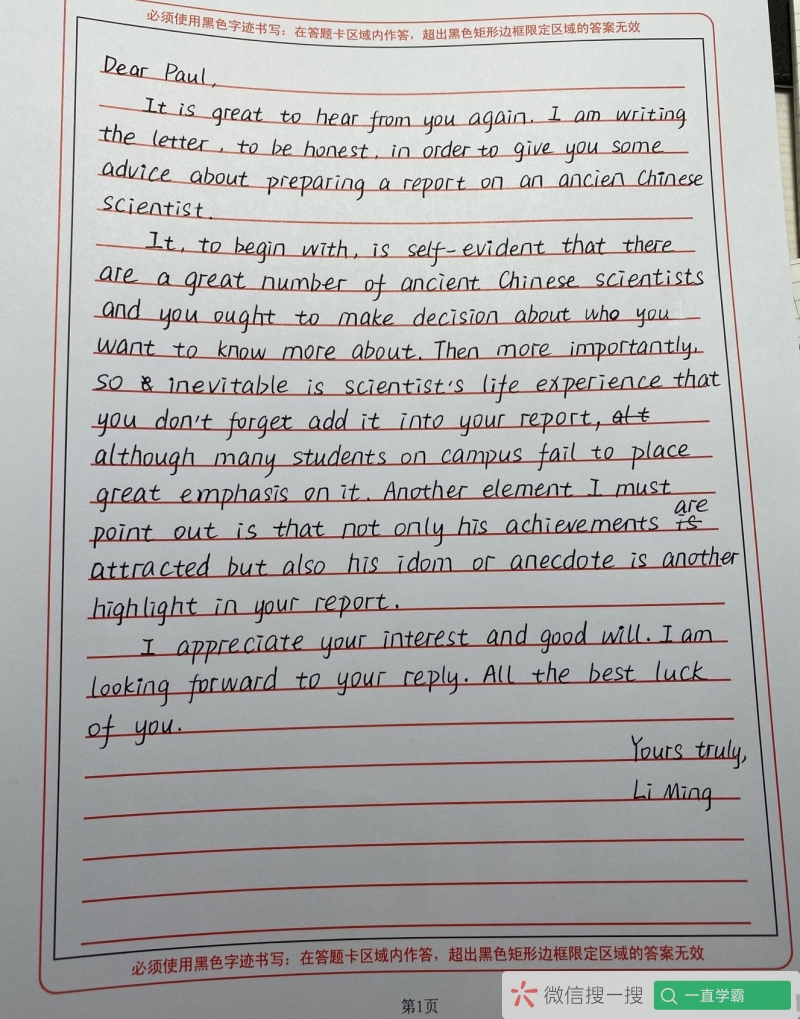 必须使用黑色字迹书写：在答题卡区域内作答，超出黑色矩形边框限定区域的答案无效
Dear Paul,
It is great to hear from you again. I am writing
the letter, to be honest, in order to give you some
advice about preparing a report on an ancien Chinese
scientist.
It, to begin with, is self-evident that there
are a great number of ancient Chinese scientists
and you ought to make decision about who you
want to know more about. Then more importantly,
so inevitable is scientist's life experience that
you don't forget add it into your report, alt
although many students on campus fail to place
great emphasis on it. Another element I must
are
point out is that not only his achievements is
attracted but also his idom or anecdote is another
highlight in your report.
I appreciate your interest and good will. I am
looking forward to your reply. All the best luck
of you.
Yours truly,
Li Ming
必须使用黑色字迹书写：在答题卡区域内作答，超出黑色矩形边框限定区域的答案无效
第1页
微信搜一搜
一直学霸